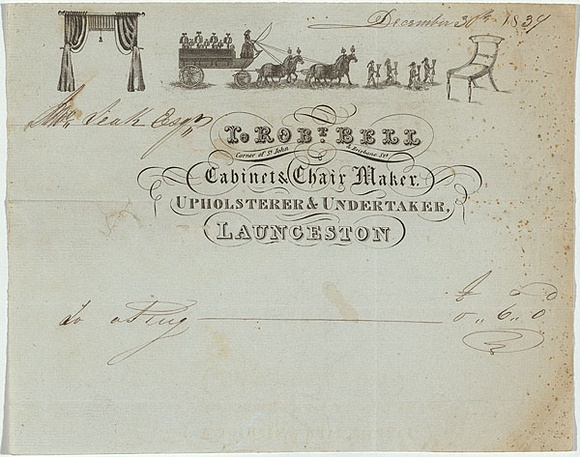 December 30th 1837
Jno. Leak Esqr.
To ROBT. BELL
Corner of St. John & Brisbane Sts.
Cabinet & Chair Maker,
UPHOLSTERER & UNDERTAKER,
LAUNCESTON
£ s d
To a Ring 0,, 6,, 0